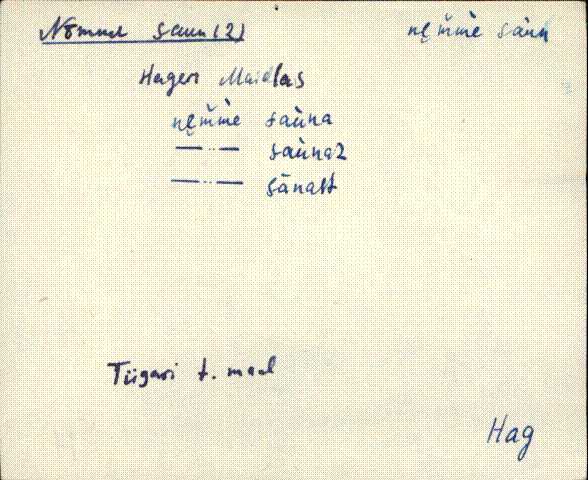 Nõmme saun (2) nęm̆m̀e sàun
Hageri Maidlas
nęm̆m̀e saùna
—··— saùnaz
—··— sānast
Tiigari t. maal
Hag